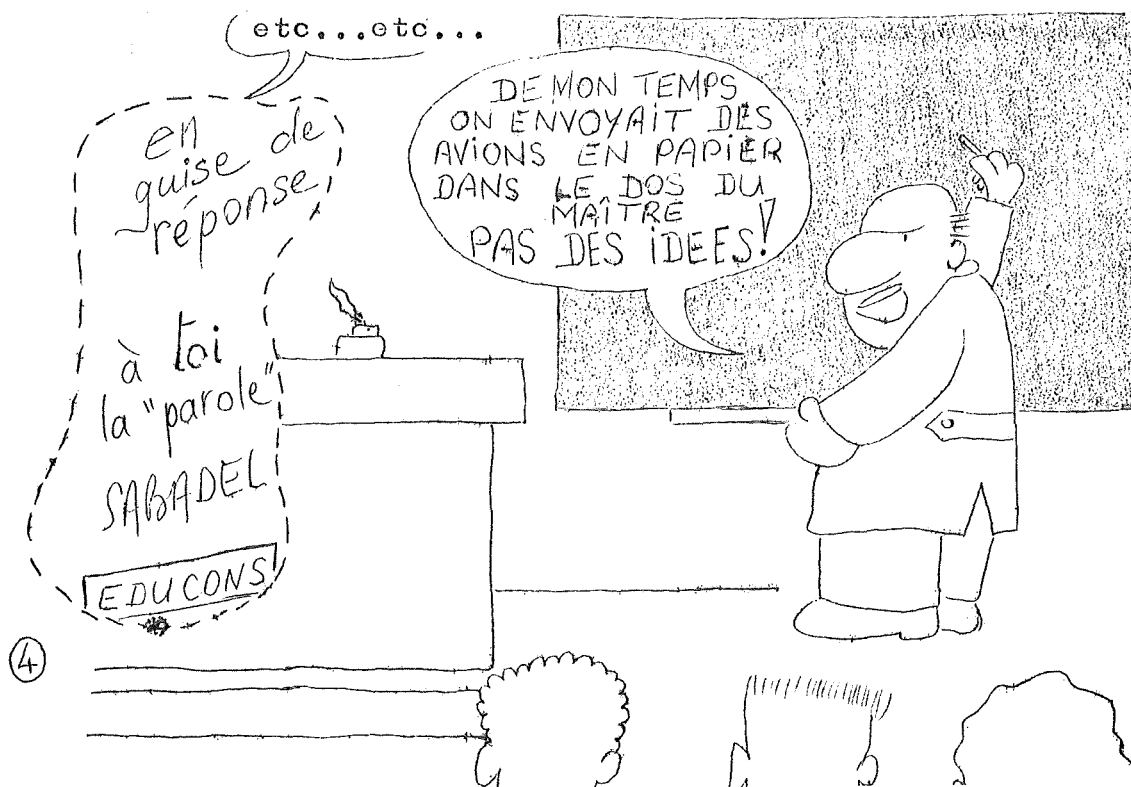 etc...etc...
en
guise de
réponse
à toi
la "parole"
SABADEL
EDUCONS
DE MON TEMPS
ON ENVOYAIT DES
AVIONS EN PAPIER
DANS LE DOS DU
MAÎTRE
PAS DES IDEES!
4